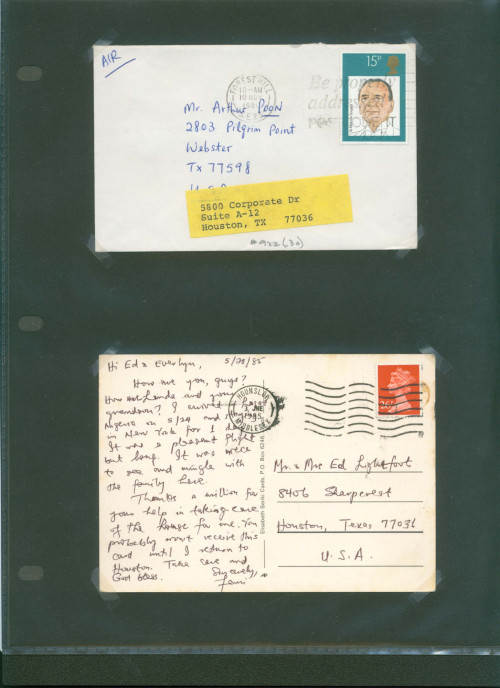 AIR
FOREST HILL
10-AM
10 NOV
S.E.23
15P
Be properly
addressed
Mr. Arthur POON
2803 Pilgrim Point
Webster
Tx 77598
U.S.A.
5800 Corporate Dr
Suite A-12
Houston, TX 77036
#922 (30)
5/28/85
Hi Ed & Everlyn,
How are you, guys?
How and your
grandson? I arrived
Nigeria on 5/24 and
in New York for 1
It was a pleasant flight
but long. It was nice
to see and mingle with
the family here.
Thanks a million for
your help in taking care
of the house for me. You
probably won't receive this
card until I return to
Houston. Take care and
God bless.
Sincerely,
Femi
Elizabeth Swiis Cards, P.O. Box 6246,
HOUNSLOW
JNE
1985
MIDDLESEX
Mr. & Mrs Ed Lightfoot
8406 Sharpcrest
Houston, Texas 77036
U.S.A.